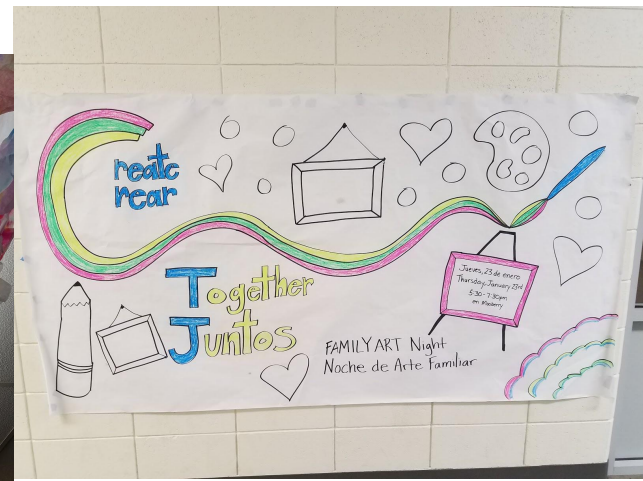 Create
Crear
Together
Juntos
Jueves, 23 de enero
Thursday, January 23rd
5:30 - 7:30pm
en Mosberry
FAMILY ART Night
Noche de Arte Familiar